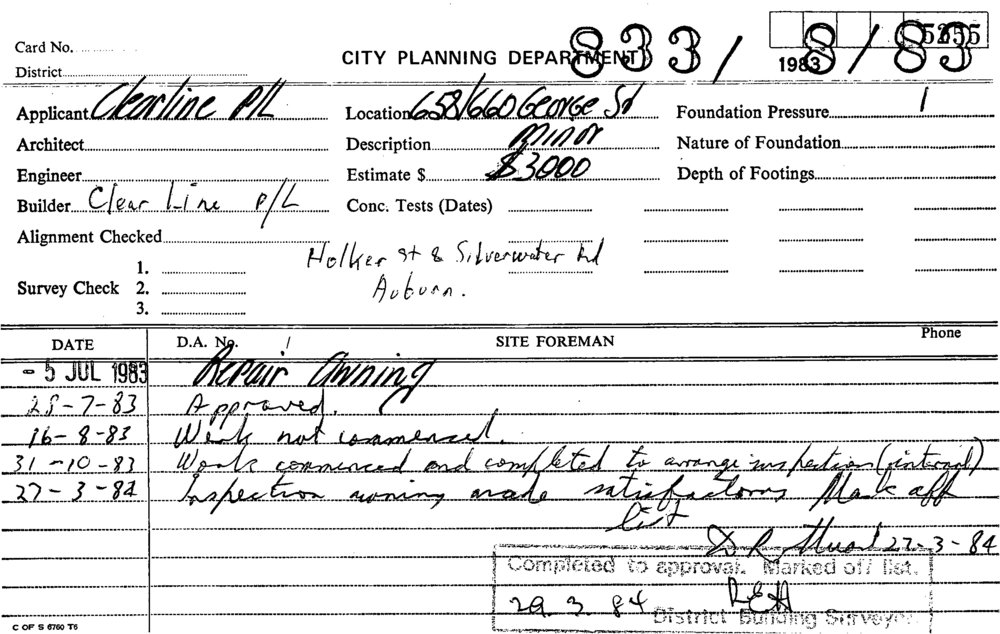 5255
Card No.
CITY PLANNING DEPARTMENT 833/8/83
1983
District
Applicant Clearline P/L Location 658/660 George St Foundation Pressure
Architect Description Minor Nature of Foundation
Engineer Estimate $ $3000 Depth of Footings
Builder Clear Line P/L Conc. Tests (Dates)
Alignment Checked
Holker St & Silverwater Rd
Auburn.
1.
Survey Check 2.
3.
DATE D.A. No. / SITE FOREMAN Phone
- 5 JUL 1983 Repair Awning
28-7-83 Approved.
16-8-83 Work not commenced.
31-10-83 Work commenced and completed to arrange inspection
27-3-84 Inspection awning made satisfactory Mark off
list
D R Stuart 27-3-84
Completed to approval. Marked off list.
29 3 84 REH
District Building Surveyor
C OF S 6760 T6